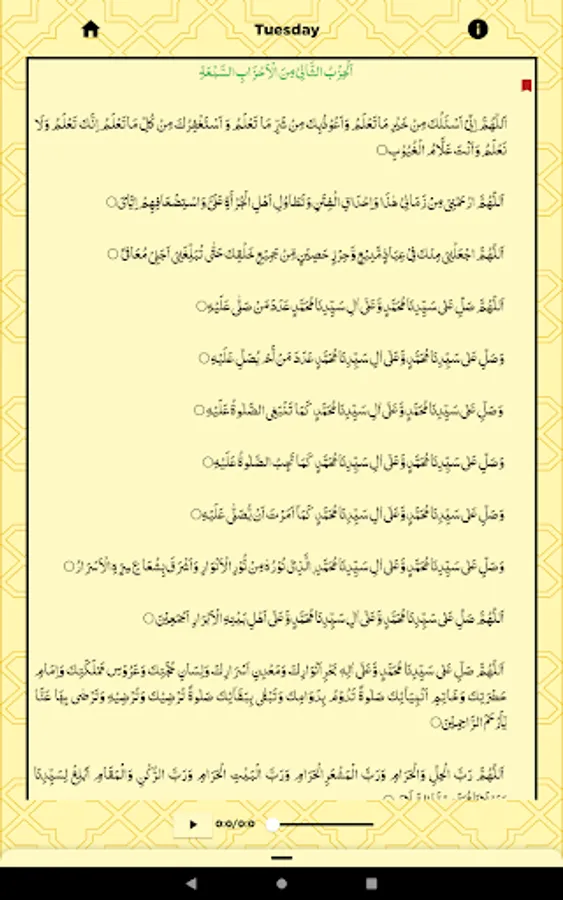 Tuesday
اَلْحِزْبُ الثَّانِیْ مِنَ الْاَحْزَابِ السَّبْعَةِ
اَللّٰهُمَّ اِنِّیْ اَسْئَلُكَ مِنْ خَیْرِ مَا تَعْلَمُ وَاَعُوْذُبِكَ مِنْ شَرِّ مَا تَعْلَمُ وَ اَسْتَغْفِرُكَ مِنْ كُلِّ مَا تَعْلَمُ اِنَّكَ تَعْلَمُ وَلَا
نَعْلَمُ وَاَنْتَ عَلَّامُ الْغُیُوْبِ○
اَللّٰهُمَّ ارْحَمْنِیْ مِنْ زَمَانِیْ هٰذَا وَاِحْدَاقِ الْفِتَنِ وَتَطَاوُلِ اَهْلِ الْجُرْأَةِ عَلَیَّ وَاسْتِضْعَافِهِمْ اِیَّایَ○
اَللّٰهُمَّ اجْعَلْنِیْ مِنْكَ فِیْ عِیَاذٍ مَّنِیْعٍ وَّحِرْزٍ حَصِیْنٍ مِّنْ جَمِیْعِ خَلْقِكَ حَتّٰی تُبَلِّغَنِیْ اَجَلِیْ مُعَافًی○
اَللّٰهُمَّ صَلِّ عَلٰی سَیِّدِنَا مُحَمَّدٍ وَّعَلٰی اٰلِ سَیِّدِنَا مُحَمَّدٍ عَدَدَ مَنْ صَلّٰی عَلَیْهِ○
وَصَلِّ عَلٰی سَیِّدِنَا مُحَمَّدٍ وَّعَلٰی اٰلِ سَیِّدِنَا مُحَمَّدٍ عَدَدَ مَنْ لَّمْ یُصَلِّ عَلَیْهِ○
وَصَلِّ عَلٰی سَیِّدِنَا مُحَمَّدٍ وَّعَلٰی اٰلِ سَیِّدِنَا مُحَمَّدٍ كَمَا تَنْبَغِی الصَّلٰوةُ عَلَیْهِ○
وَصَلِّ عَلٰی سَیِّدِنَا مُحَمَّدٍ وَّعَلٰی اٰلِ سَیِّدِنَا مُحَمَّدٍ كَمَا تَجِبُ الصَّلٰوةُ عَلَیْهِ○
وَصَلِّ عَلٰی سَیِّدِنَا مُحَمَّدٍ وَّعَلٰی اٰلِ سَیِّدِنَا مُحَمَّدٍ كَمَا اَمَرْتَ اَنْ یُّصَلّٰی عَلَیْهِ○
وَصَلِّ عَلٰی سَیِّدِنَا مُحَمَّدٍ وَّعَلٰی اٰلِ سَیِّدِنَا مُحَمَّدِ ِۨالَّذِیْ نُوْرُهٗ مِنْ نُّوْرِ الْاَنْوَارِ وَاَشْرَقَ بِشُعَاعِ سِرِّهِ الْاَسْرَارُ○
اَللّٰهُمَّ صَلِّ عَلٰی سَیِّدِنَا مُحَمَّدٍ وَّعَلٰی اٰلِ سَیِّدِنَا مُحَمَّدٍ وَّعَلٰی اَهْلِ بَیْتِهِ الْاَبْرَارِ اَجْمَعِیْنَ○
اَللّٰهُمَّ صَلِّ عَلٰی سَیِّدِنَا مُحَمَّدٍ وَّعَلٰی اٰلِهٖ بَحْرِ اَنْوَارِكَ وَمَعْدِنِ اَسْرَارِكَ وَلِسَانِ حُجَّتِكَ وَعَرُوْسِ مَمْلَكَتِكَ وَاِمَامِ
حَضْرَتِكَ وَخَاتِمِ اَنْبِیَآئِكَ صَلٰوةً تَدُوْمُ بِدَوَامِكَ وَتَبْقٰی بِبَقَآئِكَ صَلٰوةً تُرْضِیْكَ وَتُرْضِیْهِ وَتَرْضٰی بِهَا عَنَّا
یَآاَرْحَمَ الرَّاحِمِیْنَ○
اَللّٰهُمَّ رَبَّ الْحِلِّ وَالْحَرَامِ وَرَبَّ الْمَشْعَرِ الْحَرَامِ وَرَبَّ الْبَیْتِ الْحَرَامِ وَرَبَّ الرُّكْنِ وَالْمَقَامِ اَبْلِغْ لِسَیِّدِنَا
0:0/0:0